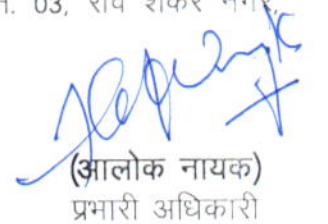 03, रवि शंकर नगर,
(आलोक नायक)
प्रभारी अधिकारी